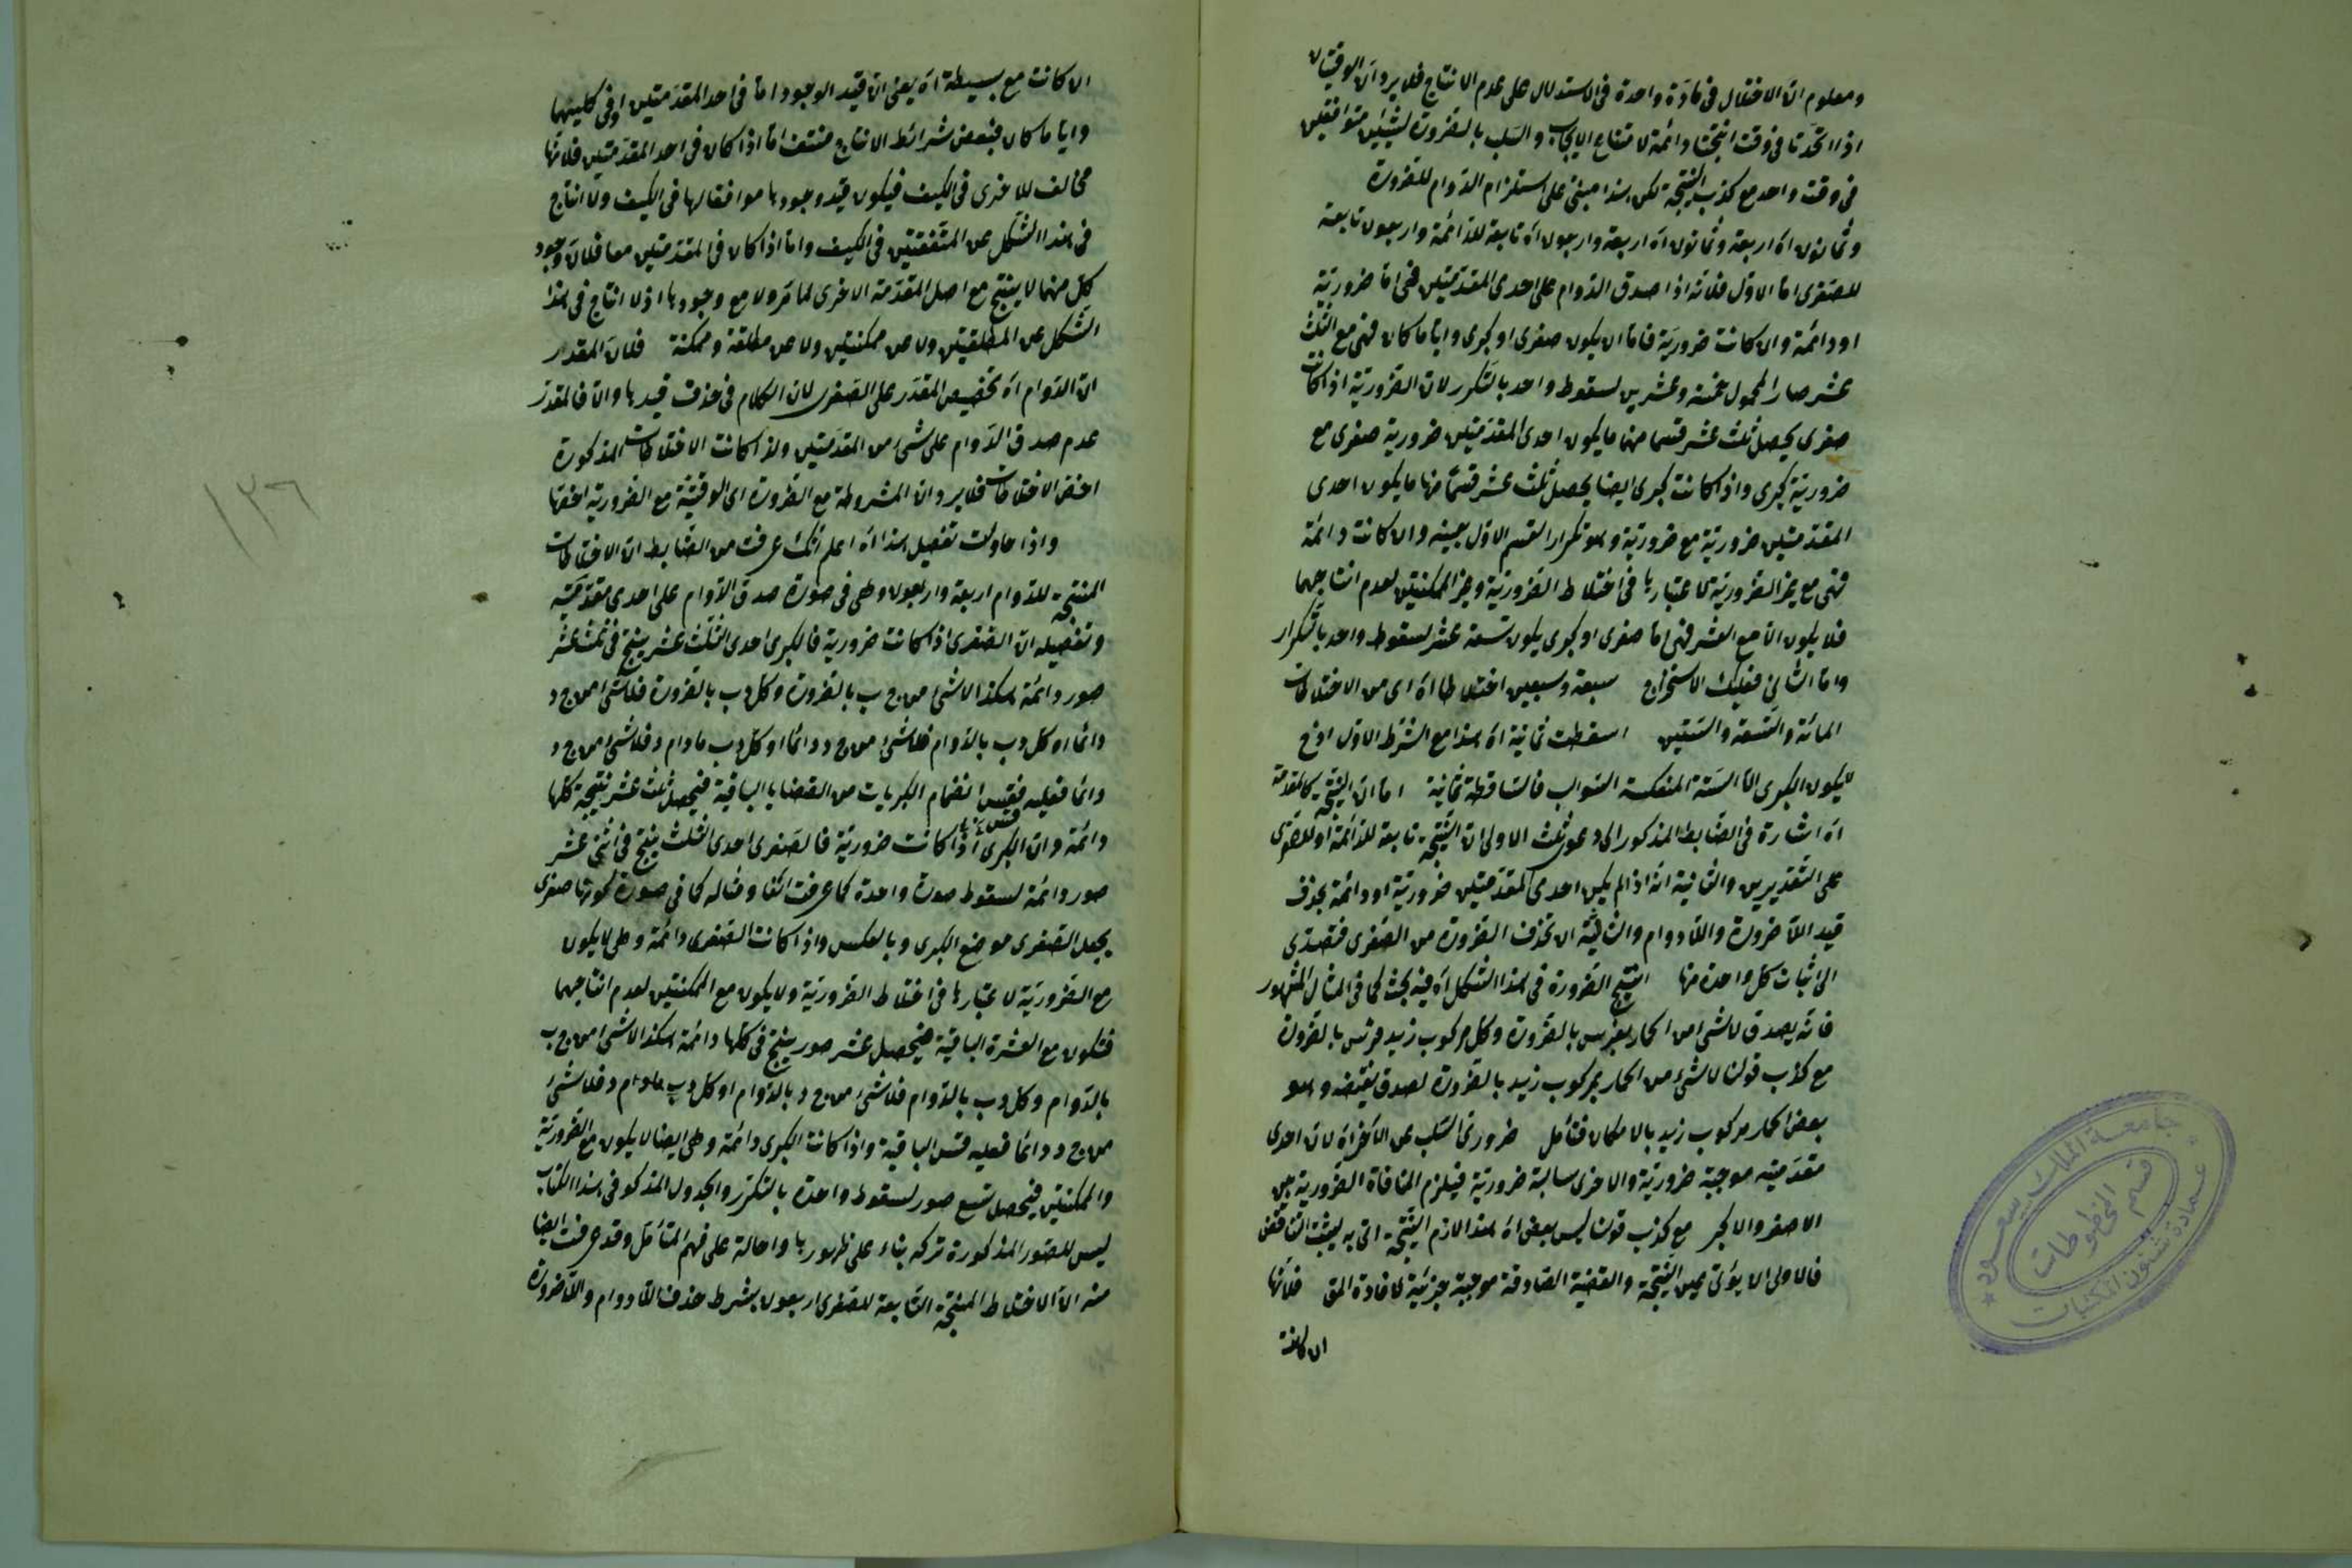 ومعلوم ان الاختلال فى مادة واحدة فى الاستدلال على عدم الانتاج فلا يرد ان الوقتيتان
اذا اتحدتا فى وقت انتجتا دائمة لامتناع الايجاب والسلب بالضرورة لشيئين متوافقين
فى وقت واحد مع كذب النتيجة لكن هذا مبنى على استلزام الدوام للضرورة
وثمانون اه اربعة وثمانون اه اربعة واربعون اه تابعة للدائمة واربعون تابعة
للصغرى اما الاول فلانه اذا صدق الدوام على احدى المقدمتين فهى اما ضرورية
او دائمة وان كانت ضرورية فاما ان يكون صغرى او كبرى وايا ما كان فهى مع الثلث
عشر صار المحمول خمسة وعشرين لسقوط واحد بالتكرر لان الضرورية اذا كانت
صغرى يحصل ثلث عشر قسما منها ما يكون احدى المقدمتين ضرورية صغرى مع
ضرورية كبرى واذا كانت كبرى ايضا يحصل ثلث عشر قسما منها ما يكون احدى
المقدمتين ضرورية مع ضرورية وهو تكرار القسم الاول بعينه وان كانت دائمة
فهى مع غير الضرورية لاعتبارها فى اختلاط الضرورية وغير الممكنتين لعدم انتاجهما
فلا يكون الا مع العشر فهى اما صغرى او كبرى يكون تسعة عشر لسقوط واحد بالتكرار
واما الثانى فعليك الاستخراج سبعة وسبعين اختلاطا اه اى من الاختلاطات
المائة والتسعة والستين اسقطت ثمانية اه هذا مع الشرط الاول اذ ح
لا يكون الكبرى الا الستة المنعكسة السوالب فالساقطة ثمانية اما ان النتيجة كالمقدمة
اه اشارة فى الضابط المذكور الى دعوى ثلث الاولى ان النتيجة تابعة للدائمة او للصغرى
على التقديرين والثانية انه اذا لم يكن احدى المقدمتين ضرورية او دائمة بحذف
قيد اللاضرورة واللادوام والثالثة ان تحذف الضرورة من الصغرى فتصدى
الى اثبات كل واحدة منها انتج الضرورة فى هذا الشكل اه فيه بحث كما فى المثال المشهور
فانه يصدق لا شئ من الحمار بفرس بالضرورة وكل مركوب زيد فرس بالضرورة
مع كذب قولنا لا شئ من الحمار بمركوب زيد بالضرورة لصدق نقيضه وهو
بعض الحمار مركوب زيد بالامكان فتأمل ضرورى السلب عن الآخر اه لان احدى
مقدمتيه موجبة ضرورية والاخرى سالبة ضرورية فيلزم المنافاة الضرورية بين
الاصغر والاكبر مع كذب قولنا ليس بعض اه هذا لازم النتيجة اتى به ليثبت التناقض
فالاولى ان يؤتى بعين النتيجة والقضية الصادقة موجبة جزئية لافادة المق فلانها
ان كانت
ان كانت مع بسيطة اه يعنى ان قيد الوجود اما فى احد المقدمتين او فى كليهما
وايا ما كان فبعض شرائط الانتاج منتف اما اذا كان فى احد المقدمتين فلانها
مخالف للاخرى فى الكيف فيكون قيد وجودها موافقا لها فى الكيف ولا انتاج
فى هذا الشكل عن المتفقتين فى الكيف واما اذا كان فى المقدمتين معا فلان وجود
كل منهما لا ينتج مع اصل المقدمة الاخرى لما مر ولا مع وجودها اذ لا انتاج فى هذا
الشكل عن المطلقتين ولا من ممكنتين ولا من مطلقة وممكنة فلان المقدر
ان الدوام اه تخصيص المقدر على الصغرى لان الكلام فى حذف قيدها والا فالمقدر
عدم صدق الدوام على شئ من المقدمتين ولذا كانت الاختلاطات المذكورة
اخص الاختلاطات فلا يرد ان المشروطة مع الضرورة اى الوقتية مع الضرورية اخصها
واذا حاولت تفصيل هذا اه اعلم انك عرفت من الضابط ان الاختلاطات
المنتجة للدوام اربعة واربعون وهى فى صورة صدق الدوام على احدى مقدمتيه
وتفصيله ان الصغرى اذا كانت ضرورية فالكبرى احدى الثلث عشر ينتج فى ثلث عشر
صور دائمة هكذا لا شئ من ج ب بالضرورة وكل د ب بالضرورة فلا شئ من ج د
دائما او كل د ب بالدوام فلا شئ من ج د دائما او كل د ب مادام د فلا شئ من ج د
دائما فعليه فقس انضمام الكبريات من القضايا الباقية فيحصل ثلث عشر نتيجة كلها
دائمة وان الكبرى اذا كانت ضرورية فالصغرى احدى الثلث ينتج فى اثنى عشر
صور دائمة لسقوط صورة واحدة كما عرفت آنفا ومثاله كما فى صورة كونها صغرى
بجعل الصغرى موضع الكبرى وبالعكس واذا كانت الصغرى دائمة وهى لا يكون
مع الضرورية لاعتبارها فى اختلاط الضرورية ولا يكون مع الممكنتين لعدم انتاجهما
فتكون مع العشرة الباقية فيحصل عشر صور ينتج فى كلها دائمة هكذا لا شئ من ج ب
بالدوام وكل د ب بالدوام فلا شئ من ج د بالدوام او كل د ب مادام د فلا شئ
من ج د دائما فعليه قس الباقية واذا كانت الكبرى دائمة وهى ايضا لا يكون مع الضرورية
والممكنتين فيحصل تسع صور لسقوط واحدة بالتكرر والجدول المذكور فى هذا الكتاب
ليس للصور المذكورة تركه بناء على ظهورها واحالة على فهم المتأمل وقد عرفت ايضا
منه ان الاختلاط المنتجة التابعة للصغرى اربعون بشرط حذف اللادوام واللاضرورة
١٣٦
جامعة الملك سعود
عمادة شئون المكتبات
قسم المخطوطات